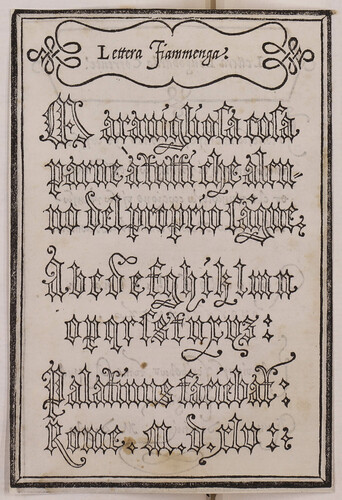 Lettera Fiammenga.
Maravigliosa cosa
parne à tutti che alcu-
no del proprio sãgue,
Abcdefghiklmn
opqrsſstuvxyz:
Palatinus faciebat:
Rome. M. d. xlv: